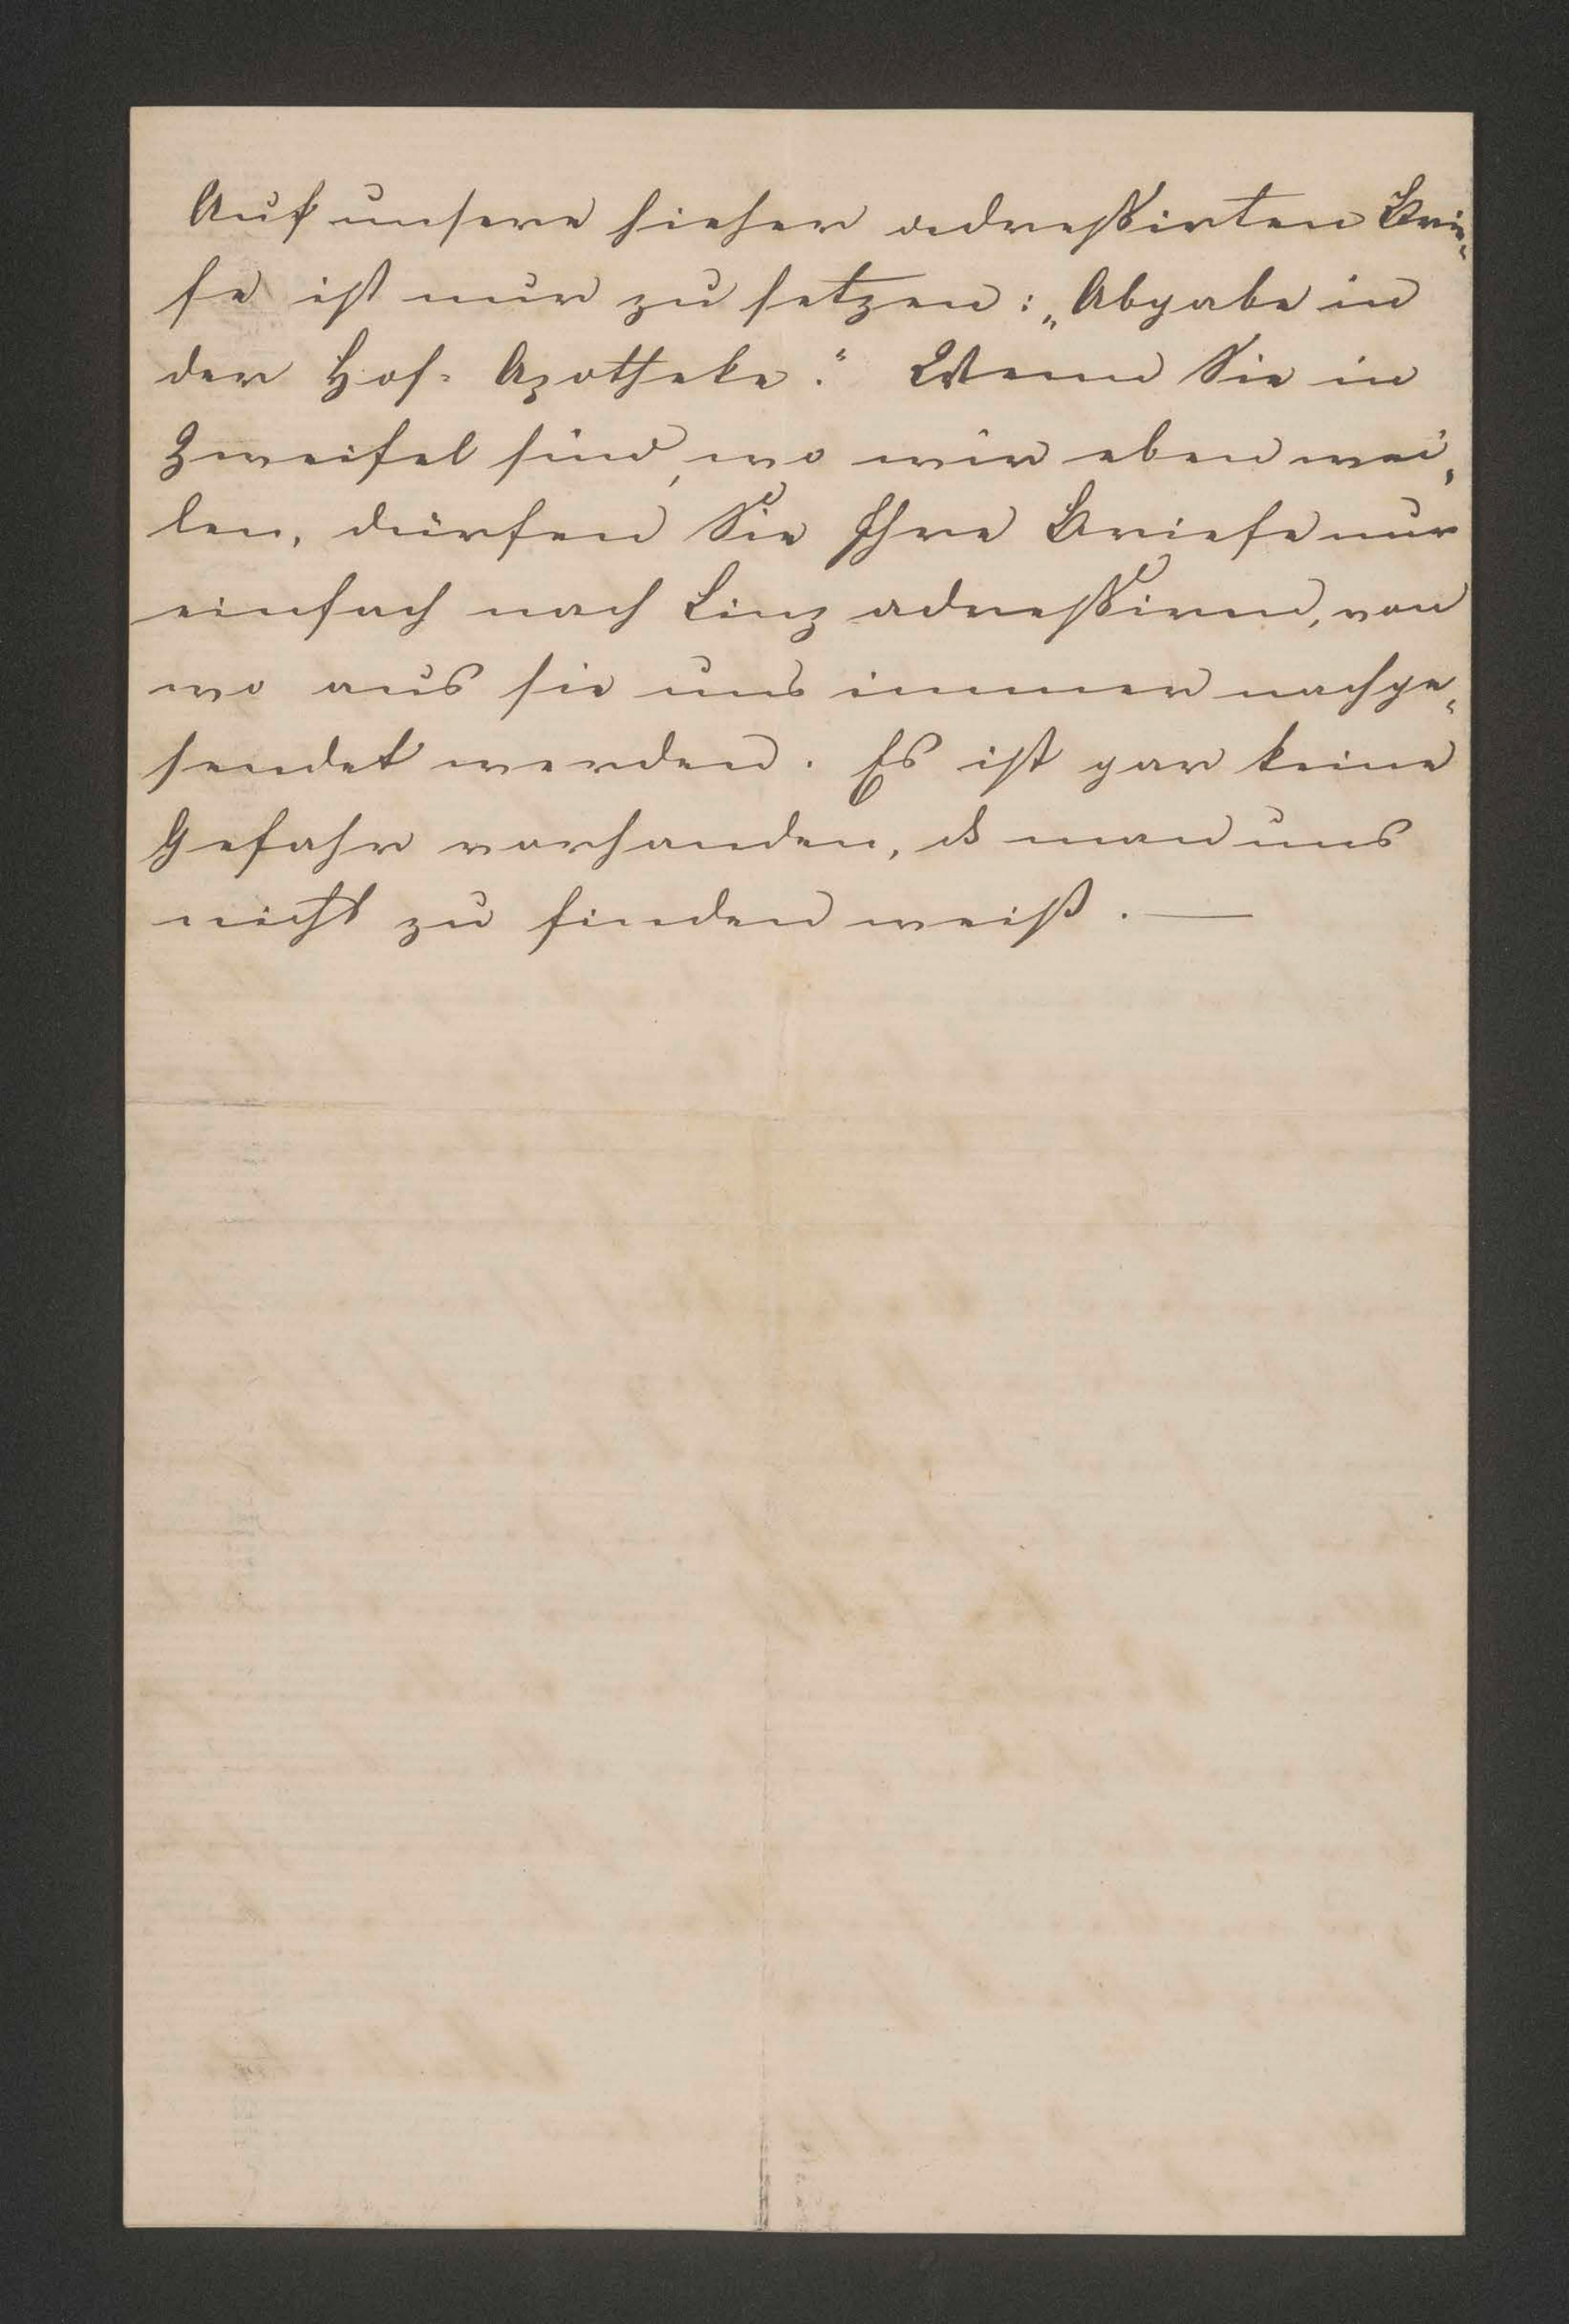 Auf unsere hieher adreßirten Brie„
fe ist nur zu setzen: „Abgabe in
der Hof= Apotheke.“ Wenn Sie in
Zweifel sind, wo wir eben wei„
len, dürfen Sie Ihre Briefe nur
einfach nach Linz adreßiren, von
wo aus sie uns immer nachge„
sendet werden. Es ist gar keine
Gefahr vorhanden, dß man uns
nicht zu finden weiß. —